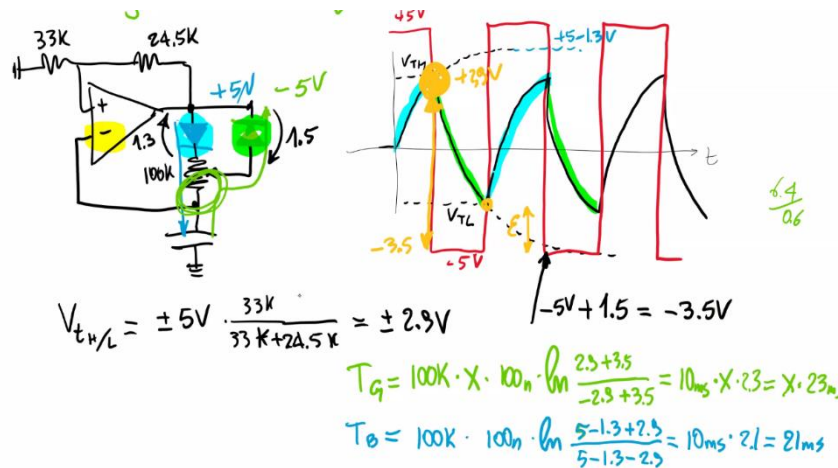 33K
24.5K
+5V
-5V
+
-
1.3
1.5
100K
+5V
+5-1.3V
VTH
+2.9V
t
VTL
ε
-3.5
-5V
6.4
0.6
-5V + 1.5 = -3.5V
VtH/L = ±5V · 33K / 33K+24.5K ≃ ±2.9V
TG = 100K · X · 100n · ln 2.9+3.5 / -2.9+3.5 = 10ms · X · 2.3 = X · 23m
TB = 100K · 100n · ln 5-1.3+2.9 / 5-1.3-2.9 = 10ms · 2.1 = 21ms